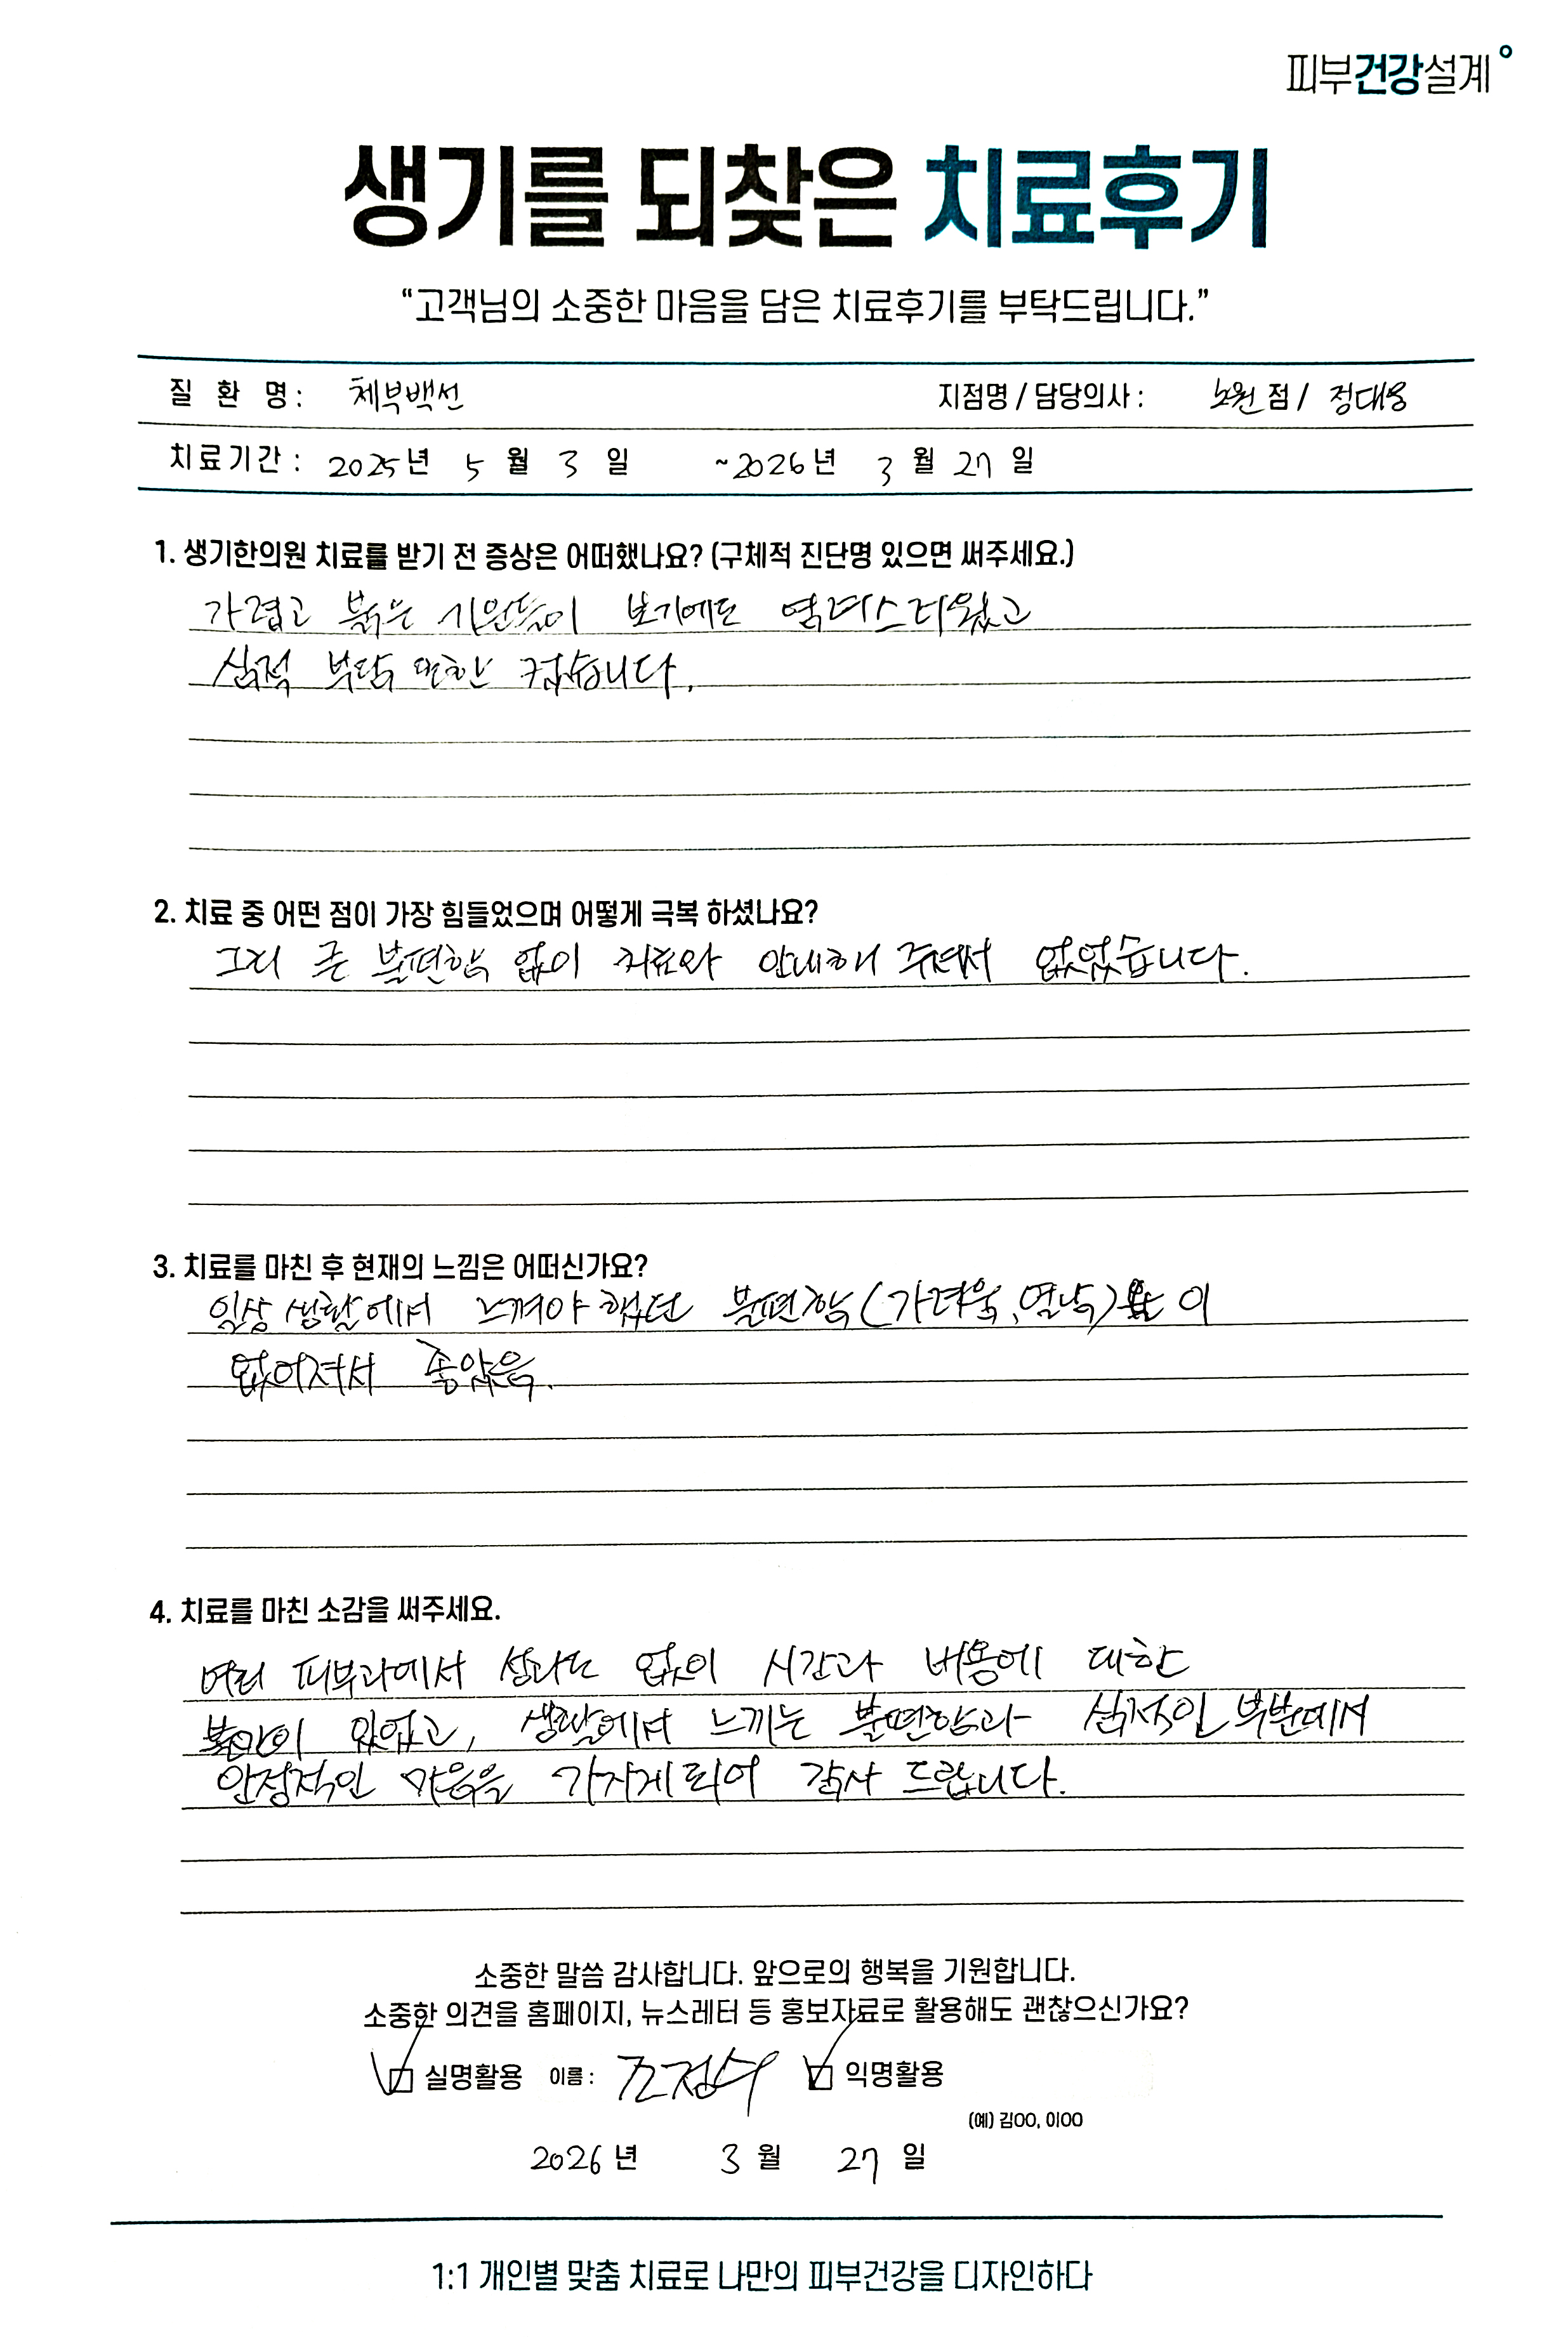 피부건강설계
생기를 되찾은 치료후기
“고객님의 소중한 마음을 담은 치료후기를 부탁드립니다.”
질 환 명 : 체부백선 지점명 / 담당의사 : 노원 점 / 정대웅
치료기간 : 2025 년 5 월 3 일 ~2026 년 3 월 27 일
1. 생기한의원 치료를 받기 전 증상은 어떠했나요? (구체적 진단명 있으면 써주세요.)
가렵고 붉은 보기에도 염려스러웠고
심적 부담 또한 컸습니다.
2. 치료 중 어떤 점이 가장 힘들었으며 어떻게 극복 하셨나요?
그리 큰 불편함 없이 치료와 안내해 주셔서 없었습니다.
3. 치료를 마친 후 현재의 느낌은 어떠신가요?
일상 생활에서 느껴야 했던 불편함(가려움, ) 이
없어져서 좋았음.
4. 치료를 마친 소감을 써주세요.
여러 피부과에서 성과도 없이 시간과 비용에 대한
불만이 있었고, 생활에서 느끼는 불편함과 심적인 부분에서
안정적인 마음을 가지게 되어 감사 드립니다.
소중한 말씀 감사합니다. 앞으로의 행복을 기원합니다.
소중한 의견을 홈페이지, 뉴스레터 등 홍보자료로 활용해도 괜찮으신가요?
실명활용 이름 : 조정수 익명활용
(예) 김OO, 이OO
2026 년 3 월 27 일
1:1 개인별 맞춤 치료로 나만의 피부건강을 디자인하다